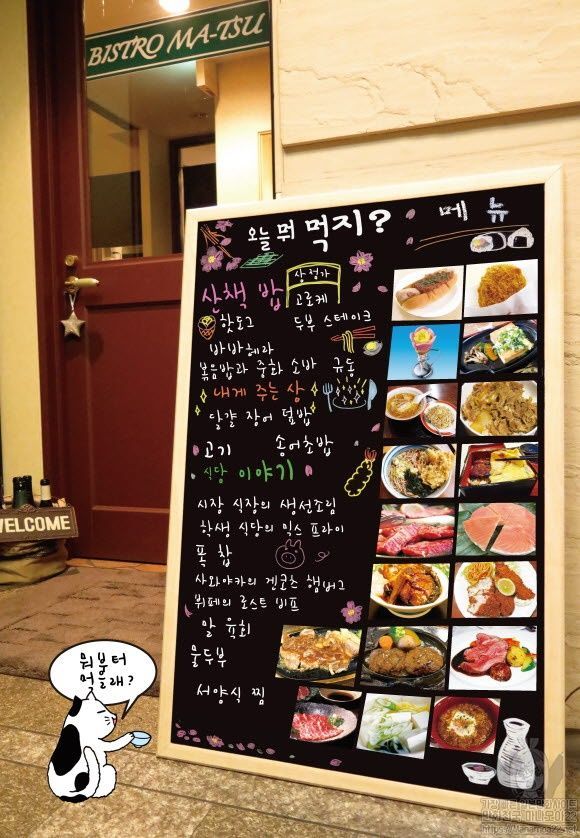 BISTRO MA-TSU
오늘 뭐 먹지?
메뉴
산책 밥
상점가
고로케
핫도그
두부 스테이크
바바헤라
볶음밥과 중화 소바
규동
내게 주는 상
달걀 장어 덮밥
고기
송어초밥
식당 이야기
시장 식장의 생선조림
학생 식당의 믹스 프라이
폭 찹
사와야카의 겐코츠 햄버그
뷔페의 로스트 비프
말 육회
물두부
서양식 찜
WELCOME
뭐부터
먹을래?